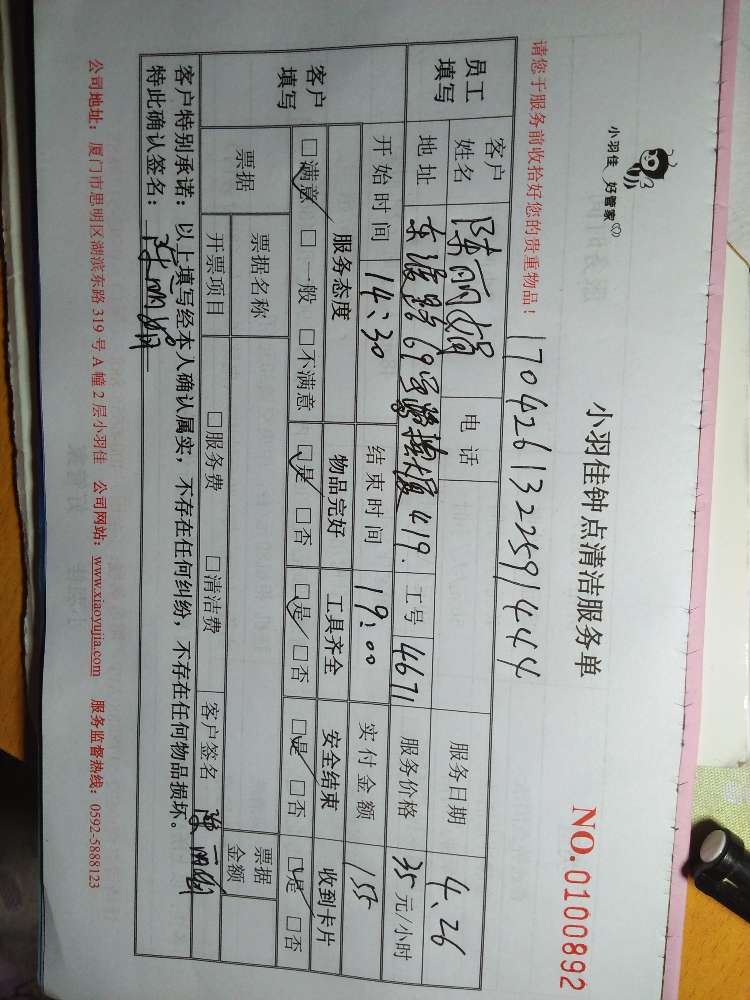 小羽佳 好管家
小羽佳钟点清洁服务单
NO.0100892
请您于服务前收拾好您的贵重物品！
17042613225914 44
员工填写
客户姓名 陈丽娟 电话 服务日期 4.26
地址 东渡路69号 大厦419. 工号 4671 服务价格 35元/小时
开始时间 14:30 结束时间 19:00 实付金额 155
客户填写
服务态度 物品完好 工具齐全 安全结束 收到卡片
□满意 □一般 □不满意 □是 □否 □是 □否 □是 □否 □是 □否
票据
票据名称 票据金额
开票项目 □服务费 □清洁费 客户签名 陈丽娟
客户特别承诺：以上填写经本人确认属实，不存在任何纠纷，不存在任何物品损坏。
特此确认签名：陈丽娟
公司地址：厦门市思明区湖滨东路319号A幢2层小羽佳 公司网站：www.xiaoyujia.com 服务监督热线：0592-5888123